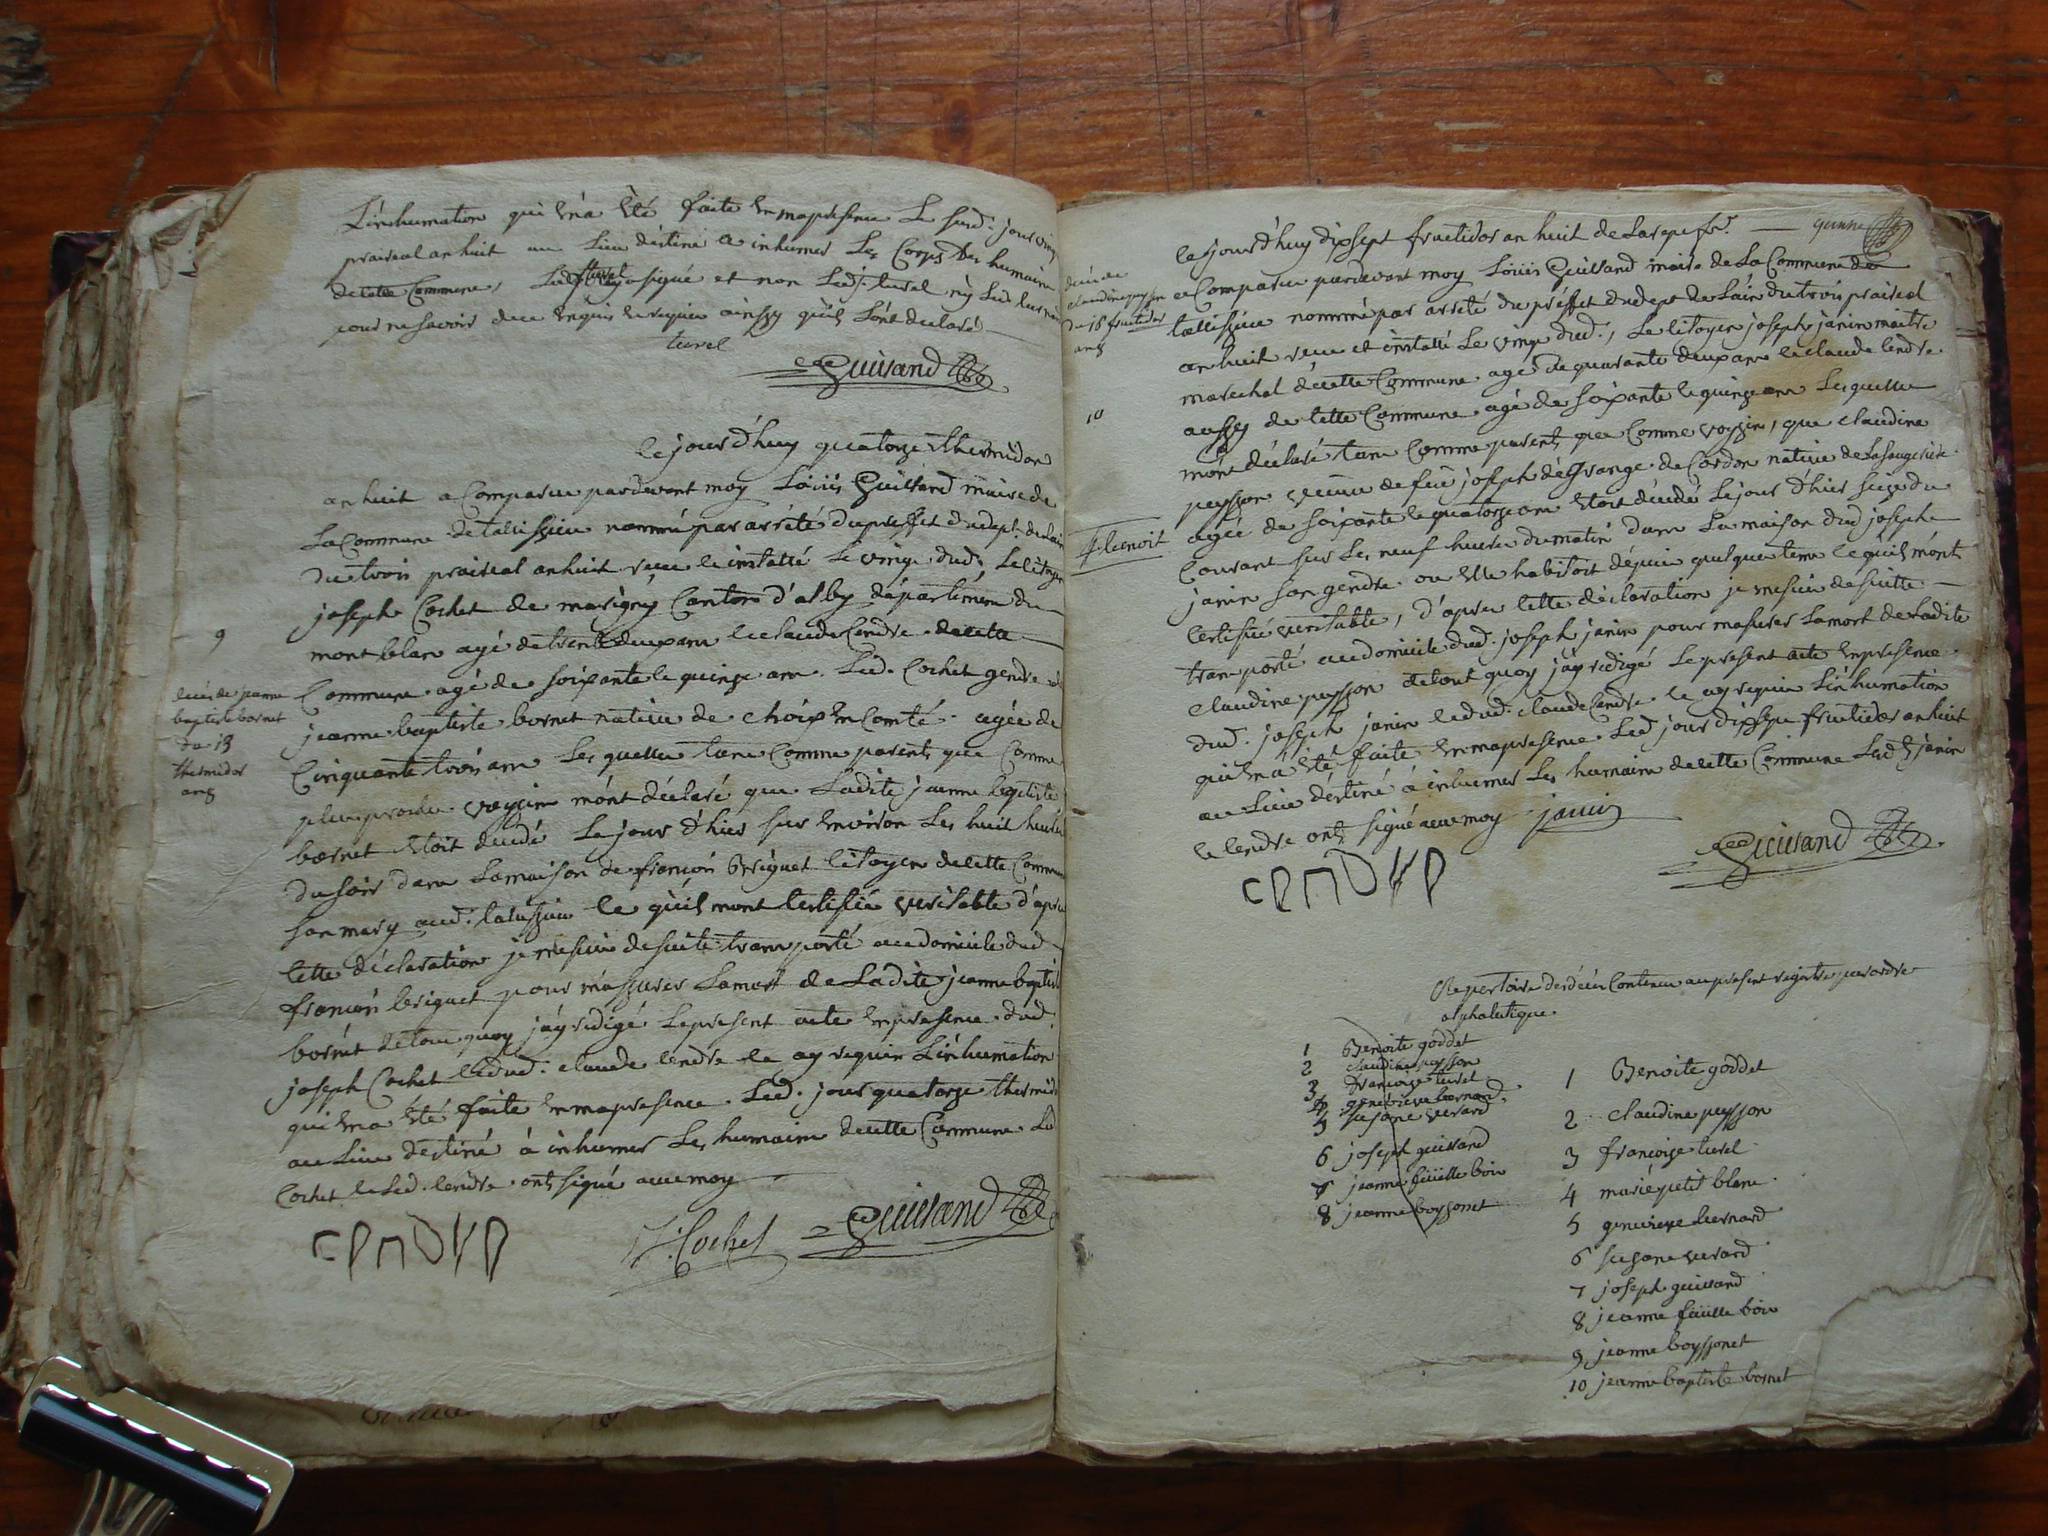 L'inhumation qui m'a été faite en ma présence le susd. jour vingt
prairial an huit au lieu déstiné a inhumer les Corps des humains
de cette Commune, Led. turel a signé et non Led. turel ny Led.
pour ne savoir de ce enquis et requis ainssy qu'ils l'ont declaré
turel
Guivand
Ce jourd'huy quatorze thermidor
an huit a Comparu pardevant moy Loüis Guivand maire de
La Commune de talissieu nommé par arrété du preffet du dept. de Lain
du trois prairial an huit reçu et installé Le vingt dud. Le citoyen
joseph Cochet de marigny Canton d'alby département du
9
mont blanc agé de trente deux ans et claude Cendre de cette
Commune agé de soixante et quinze ans. Led. Cochet gendre de
decès de jeanne
baptiste bornet
du 13
thermidor
an 8
jeanne baptiste bornet native de choix en Comté agée de
Cinquante trois ans Les quelles tant Comme parents que Comme
plus proches voyzins m'ont déclaré que Ladite jeanne baptiste
bornet étoit decédé Le jour d'hier sur environ Les huit heures
du soir dans La maison de françois Briguet citoyen de cette Commune
son mary aud. talissieu Ce qu'ils m'ont Certifié veritable d'après
Cette déclaration je me suis de suite transporté au domicile dud.
françois briguet pour m'assurer La mort de Ladite jeanne baptiste
bornet de tout quoy j'ay redigé Le present acte en presence dud.
joseph Cochet et dud. claude Cendre et ay requis L'inhumation
qui m'a été faite en ma presence Led. jour quatorze thermidor
au Lieu destiné à inhumer Les humains de cette Commune Led.
Cochet et Led. Cendre ont signé avec moy
CANDRA
J. Cochet
Guivand
Ce jourd'huy dixsept fructidor an huit de La repe fse.
decès de
claudine peysson
du 16 fructidor
an 8
a Comparu pardevant moy Loüis Guivand maire de La Commune de
talissieu nommé par arrété du préffet du dept de Lain du trois prairial
an huit reçu et installé Le vingt dud., Le citoyen joseph janin maitre
marechal de cette Commune agé de quarante deux ans et claude Cendre
10
aussy de Cette Commune agé de soixante et quinze ans Les quelles
m'ont déclaré tant Comme parents que Comme voyzins, que claudine
peysson veuve de feü joseph défrange de Cordon native de
agée de soixante et quatorze ans étoit décédé Le jour d'hier seize du
f. benoit
Courant sur Les neuf heures du matin dans La maison dud joseph
janin son gendre ou elle habitoit dépuis quelque tems Ce qu'ils m'ont
Certifié veritable, d'après Cette déclaration je me suis de suitte
transporté au domicile dud. joseph janin pour m'asurer La mort de Ladite
claudine peysson de tout quoy j'ay redigé Le present acte en presence
dud. joseph janin et dud. claude Cendre et ay requis L'inhumation
qui m'a été faite en ma presence Led jour dixsept fructidor an huit
au Lieu déstiné à inhumer Les humains de cette Commune Led. janin
et Cendre ont signé avec moy janin
CANDRA
Guivand
Repertoire des décès Contenu au present registre par ordre
alphabetique.
1 Benoite goddet
2 claudine peysson
3 françoise turel
4 genevieve bernard
5 susane verard
6 joseph guivand
7 jeanne füille bois
8 jeanne boyssonet
1 Benoite goddet
2 claudine peysson
3 françoize turel
4 marie petit blanc
5 genevieve bernard
6 susane verard
7 joseph guivand
8 jeanne füille bois
9 jeanne boyssonet
10 jeanne baptiste bornet